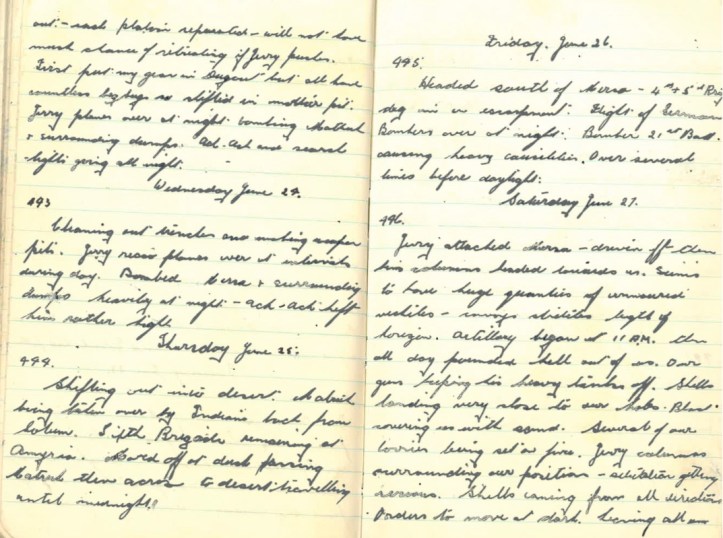 out - each platoon separated - will not have
much chance of retreating if Jerry pushes.
First put my gear in dugout but all have
countless bugs so shifted in another pit.
Jerry planes over at night bombing Matruh
+ surrounding dumps. Ack-Ack and search
-lights going all night.
Wednesday June 24.
493
Cleaning out trenches and making deeper
pits. Jerry recco planes over at intervals
during day. Bombed Mersa + surrounding
dumps heavily at night - ack-ack kept
him rather high.
Thursday June 25.
494.
Shifting out into desert. Matruh
being taken over by Indians back from
Tobruk. Fifth Brigade remaining at
Amyria. Moved off at dusk passing
Matruh then across to desert travelling
until midnight.
Friday. June 26.
495.
Headed south of Mersa - 4th + 5th Brig
dug in on escarpment. Flight of German
Bombers over at night. Bomber 21st Batt.
causing heavy causilities. Over several
times before daylight.
Saturday June 27.
496.
Jerry attacked Mersa - driven off then
his columns headed towards us. Seems
to have huge quantities of armoured
vehicles - convoys stretches length of
horizon. Artillery began at 11 A.M. then
all day pounded hell out of us. Our
guns keeping his heavy tanks off. Shells
landing very close to our holes. Blast
covering us with sand. Several of our
lorries being set on fire. Jerry columns
surrounding our position - situation getting
serious. Shells coming from all directions
Orders to move at dark. Leaving all our